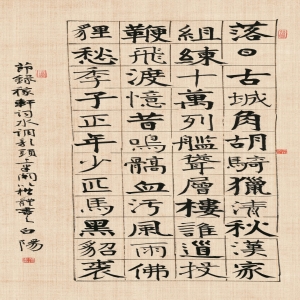 落日古城角胡騎獵清秋漢家
組練十萬列艦聳層樓誰道投
鞭飛渡憶昔鳴髇血污風雨佛
貍愁季子正年少匹馬黑貂裘
節錄稼軒詞水調歌頭一闋以隸體書 白陽